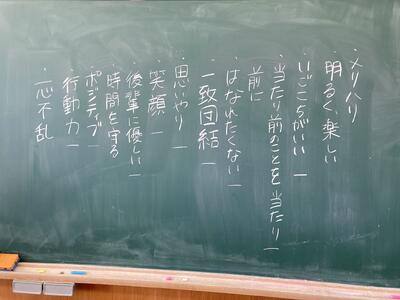 ・メリハリ
・明るく、楽しい
・いごこちがいい 一
・当たり前のことを当たり 一
前に
・はなれたくない 一
・一致団結 一
・思いやり 一
・笑顔 一
・後輩に優しい 一
・時間を守る
・ポジティブ 一
・行動力 一
・一心不乱